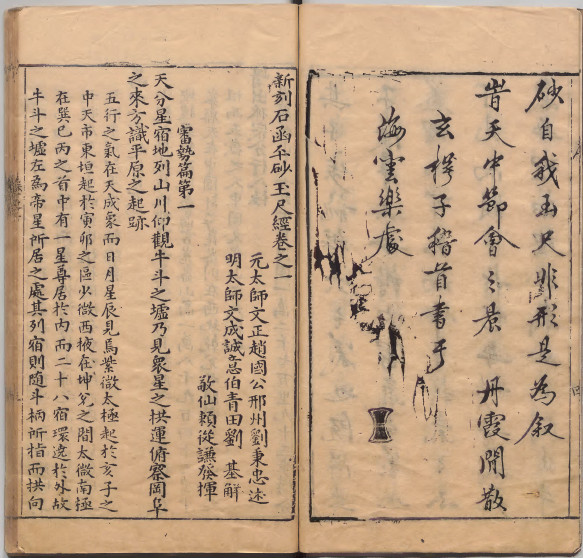 砂自我函尺非形是為叙
昔天中節會之晨丹霞閒散
玄樗子稽首書于
海雲樂處
新刻石函平砂玉尺經卷之一
元太師文正趙國公邢州劉秉忠述
明太師文成誠意伯青田劉基解
敬仙賴從謙發揮
審勢篇第一
天分星宿地列山川仰觀牛斗之墟乃見衆星之拱運俯察岡阜
之來方識平原之起跡
五行之氣在天成象而日月星辰見焉紫微太極起於亥子之
中天市東垣起於寅卯之區少微西掖在坤兌之間太微南極
在巽巳丙之首中有一星尊居於內而二十八宿環遶於外故
牛斗之墟左為帝星所居之處其列宿則随斗柄所指而拱向